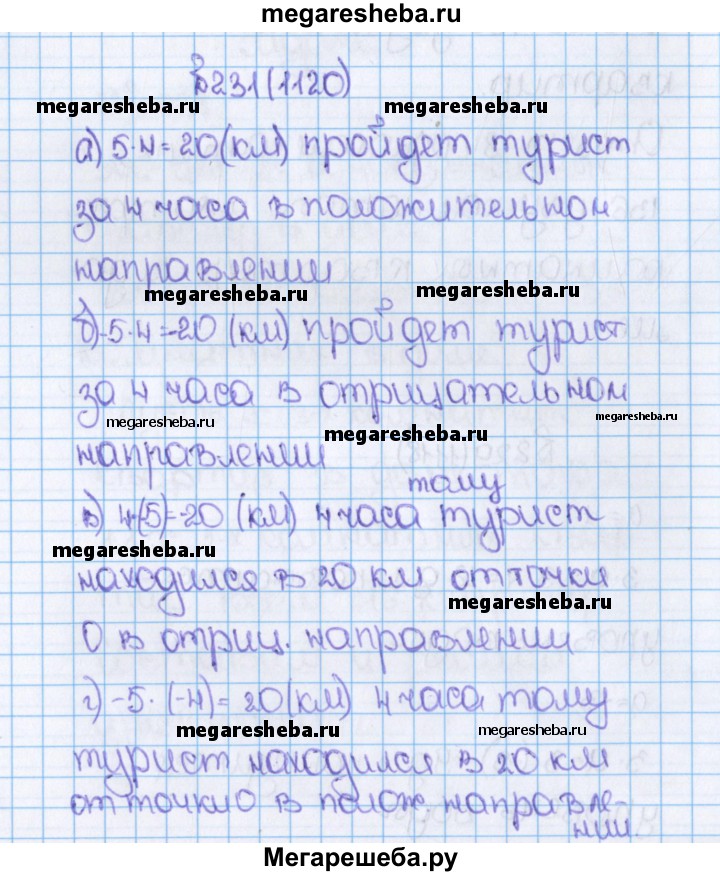 megaresheba.ru
Б231(1120)
megaresheba.ru megaresheba.ru
а) 5·4=20(км) пройдет турист
за 4 часа в положительном
направлении
megaresheba.ru megaresheba.ru
б)-5·4=-20 (км) пройдет турист
за 4 часа в отрицательном
megaresheba.ru megaresheba.ru
megaresheba.ru
направлении
тому
в) 4·(-5)=-20 (км) 4 часа турист
megaresheba.ru
находился в 20 км от точки
megaresheba.ru
0 в отриц. направлении
г) -5·(-4)= 20(км) 4 часа тому
megaresheba.ru megaresheba.ru
турист находился в 20 км
от точки 0 в полож. направле-
нии
Мегарешеба.ру